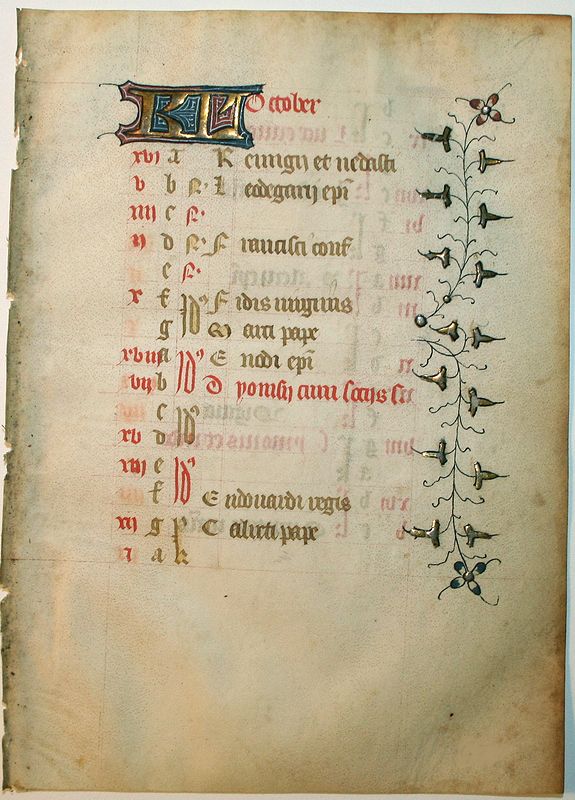 KL October
xvi a R emigij et uedasti
v b N. L eodegarij epi
iiii c N.
ii d N. F rancisci conf
e N.
x f Id' F idis uirginis
g M arci pape
xviii a Id' E uodi epi
vii b D yonisij cum socijs
c Id'
xv d
iiii e Id'
f E adouardi regis
xii g p C alixti pape
i a k